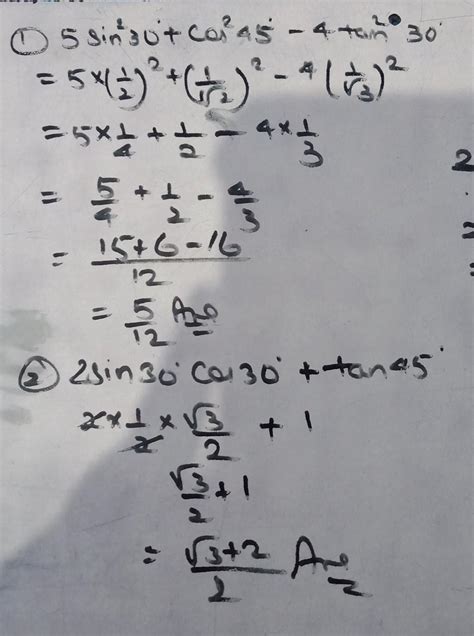 ① 5 sin²30° + cos²45° - 4 tan²30°
= 5 × (1/2)² + (1/√2)² - 4 (1/√3)²
= 5 × 1/4 + 1/2 - 4 × 1/3
= 5/4 + 1/2 - 4/3
= (15 + 6 - 16)/12
= 5/12 Ans
② 2sin30° cos30° + tan45°
2 × 1/2 × √3/2 + 1
√3/2 + 1
= (√3 + 2)/2 Ans
2
=
=